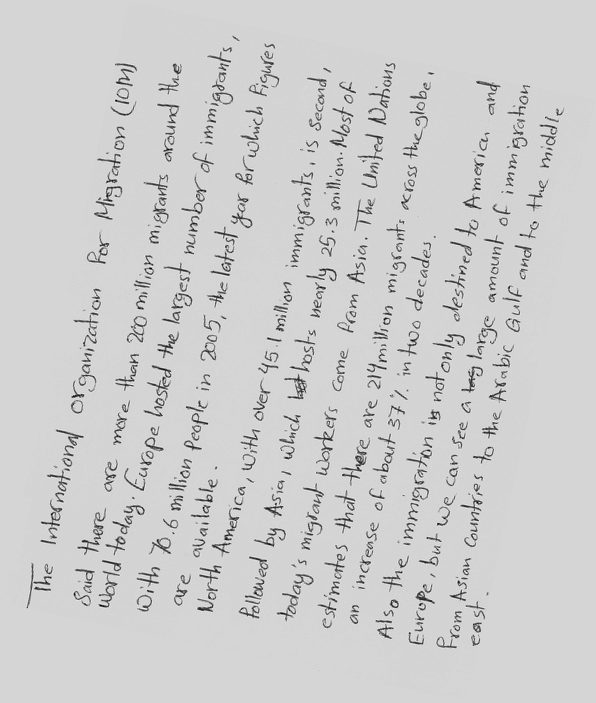 The International organization For Migration (IOM)
Said there are more than 200 million migrants around the
world today. Europe hosted the largest number of immigrants,
with 70.6 million People in 2005, the latest year for which Figures
are available.
North America, with over 45.1 million immigrants, is second,
followed by Asia, which hosts nearly 25.3 million. Most of
today's migrant workers come from Asia. The United Nations
estimates that there are 214 million migrants across the globe,
an increase of about 37% in two decades.
Also the immigration is not only destined to America and
Europe, but we can see a large amount of immigration
From Asian Countries to the Arabic Gulf and to the middle
east.